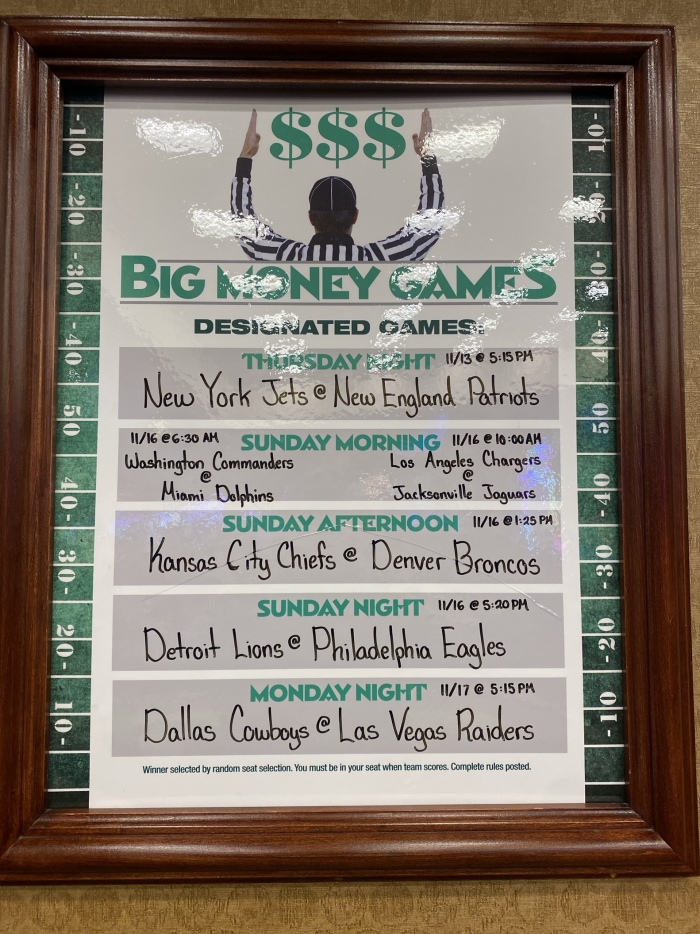 $$$
BIG MONEY GAMES
DESIGNATED GAMES:
THURSDAY NIGHT 11/13 @ 5:15 PM
New York Jets @ New England Patriots
11/16 @ 6:30 AM SUNDAY MORNING 11/16 @ 10:00 AM
Washington Commanders
@
Miami Dolphins
Los Angeles Chargers
@
Jacksonville Jaguars
SUNDAY AFTERNOON 11/16 @ 1:25 PM
Kansas City Chiefs @ Denver Broncos
SUNDAY NIGHT 11/16 @ 5:20 PM
Detroit Lions @ Philadelphia Eagles
MONDAY NIGHT 11/17 @ 5:15 PM
Dallas Cowboys @ Las Vegas Raiders
Winner selected by random seat selection. You must be in your seat when team scores. Complete rules posted.
-10
-20
-30
-40
50
40-
30-
20-
10-
10-
20-
30-
40-
50
-40
-30
-20
-10